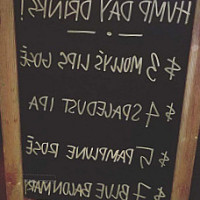 HUMP DAY DRINKS!
$3 MOLLY'S LIPS GOSÉ
$4 SPACEDUST IPA
$5 PAMPLUNE ROSÉ
$7 BLUE